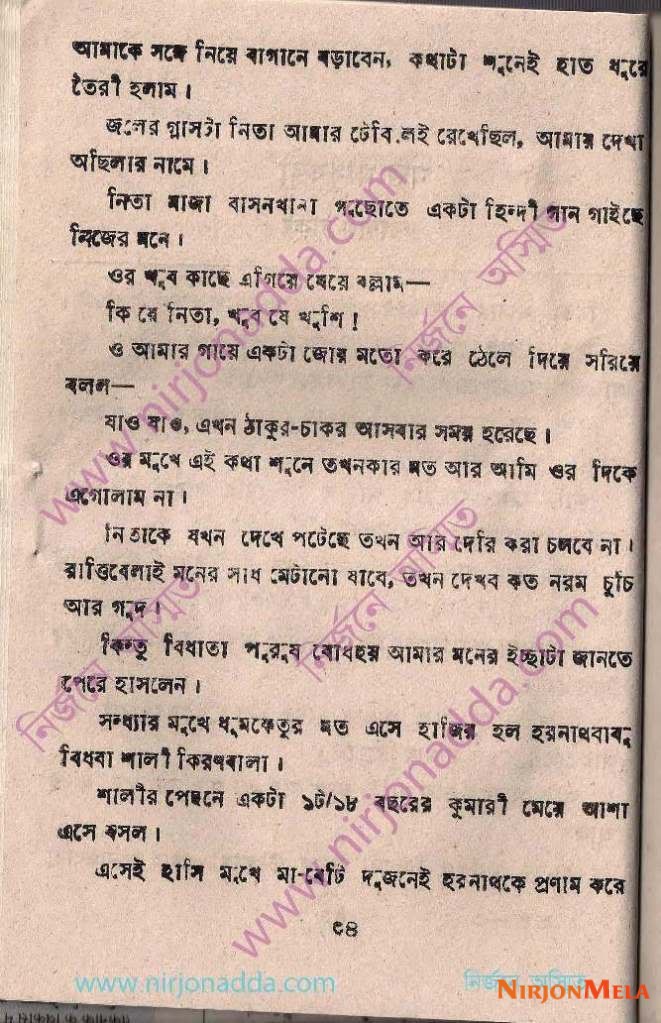 আমাকে সঙ্গে নিয়ে বাগানে বড়াবেন, কথাটা শুনেই হাত ধুরে
তৈরী হলাম।
জলের গ্লাসটা নিতা আমার টেবিলই রেখেছিল, আমায় দেখা
অছিলার নামে।
নিতা মাজা বাসনখানা পুছোতে একটা হিন্দী গান গাইছে
নিজের মনে।
ওর খুব কাছে এগিয়ে যেয়ে বল্লাম—
কি রে নিতা, খুব যে খুশি!
ও আমার গায়ে একটা জোর মতো করে ঠেলে দিয়ে সরিয়ে
বলল—
যাও যাও, এখন ঠাকুর-চাকর আসবার সময় হরেছে।
ওর মুখে এই কথা শুনে তখনকার মত আর আমি ওর দিকে
এগোলাম না।
নিতাকে যখন দেখে পটেছে তখন আর দেরি করা চলবে না।
রাত্তিবেলাই মনের সাধ মেটানো যাবে, তখন দেখব কত নরম চুচি
আর গুদ।
কিন্তু বিধাতা পুরুষ বোধহয় আমার মনের ইচ্ছাটা জানতে
পেরে হাসলেন।
সন্ধ্যার মুখে ধুমকেতুর মত এসে হাজির হল হরনাথবাবু
বিধবা শালী কিরণবালা।
শালীর পেছনে একটা ১ট/১৮ বছরের কুমারী মেয়ে আশা
এসে বসল।
এসেই হাসি মুখে মা-বেটি দুজনেই হরনাথকে প্রণাম করে
৭৪
www.nirjonadda.com
নির্জনে অস্মিত
নির্জনে অস্মিত
নির্জনে অস্মিত
www.nirjonadda.com
www.nirjonadda.com
নির্জনে অস্মিত
NIRJONMELA